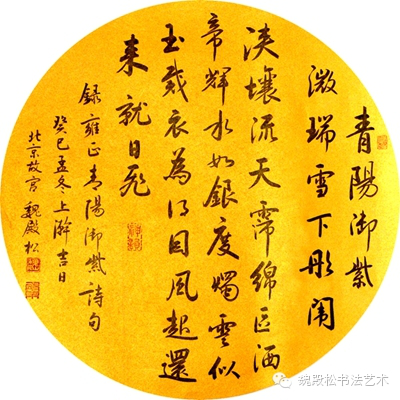 青陽御紫
微瑞雪下彤闈
浹壤流天霈綿區洒
帝輝水如銀度燭雲似
玉裁衣為得因風起還
來就日飛
録雍正青陽御紫詩句
癸巳孟冬上澣吉日
北京故宮魏殿松
魏殿松书法艺术